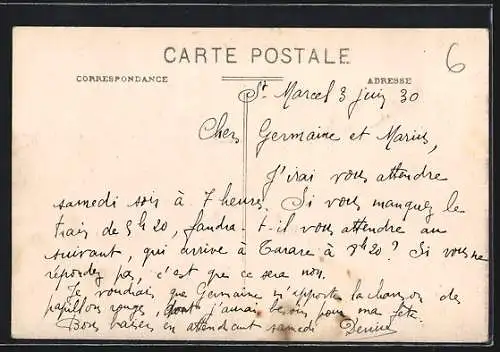 CARTE POSTALE
6
CORRESPONDANCE
ADRESSE
St Marcel 3 juin 30
Chers Germaine et Marius,
J'irai vous attendre
samedi soir à 7 heures. Si vous manquez le
train de 5h20, faudra-t-il vous attendre au
suivant, qui arrive à Tarare à 8h20? Si vous ne
répondez pas, c'est que ce sera non.
Je voudrais que Germaine m'apporte la chanson des
papillons rouges, dont j'aurai besoin pour ma fête.
Bons baisers en attendant samedi